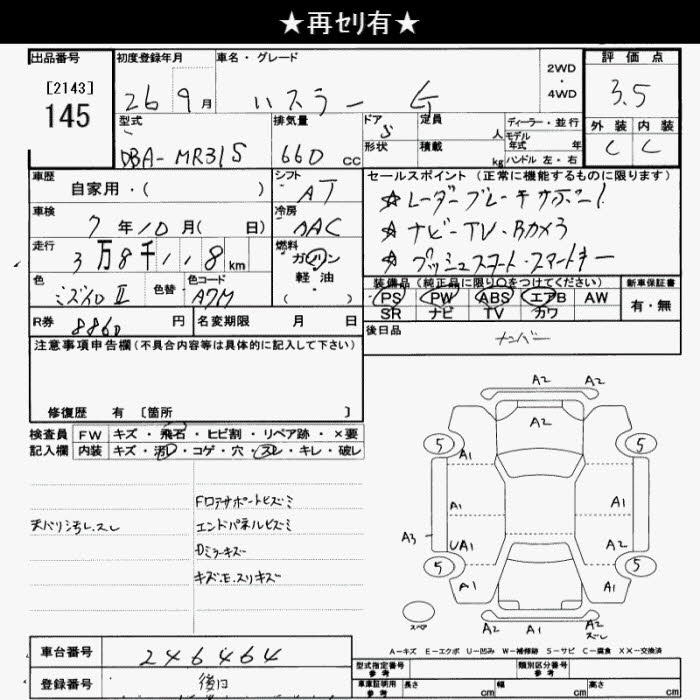 ★再ｾﾘ有★
出品番号
[2143]
145
初度登録年月
26 9月
車名・グレード
ハスラー G
2WD
・
4WD
評価点
3.5
型式
DBA-MR31S
排気量
660 cc
ドア 5
形状
定員 人
積載 kg
ディーラー・並行
モデル年式 年
ハンドル 左・右
外装 内装
C C
車歴
自家用・( )
シフト
AT
セールスポイント (正常に機能するものに限ります)
☆レーダーブレーキサポート
☆ナビ-TV・Bカメラ
☆プッシュスタート・スマートキー
車検
7年10月( 日)
冷房
AAC
走行
3万8千118km
燃料
ガソリン
軽油
( )
色
ミズイロⅡ
色替
色コード
装備品 (純正品に限り○をつけてください)
PS PW ABS エアB AW
SR ナビ TV カワ
新車保証書
有・無
R券
8860円
名変期限 月 日
後日品
ナンバー
注意事項申告欄(不具合内容等は具体的に記入して下さい)
修復歴 有 〔箇所 〕
検査員 FW キズ・飛石・ヒビ割・リペア跡・×要
記入欄 内装 キズ・汚れ・コゲ・穴・スレ・キレ・破レ
天バリ汚レ.スレ
Fロアサポートヒズミ
エンドパネルヒズミ
Dミラーキズ
キズ.E.スリキズ
A2 A2
A2
5 5
A1
A1 A1
A3 UA1 A2
5 5
A1 A1
スペア
A1
A2 A2
A-キズ E-エクボ U-凹み W-補修跡 S-サビ C-腐食 XX-交換済
車台番号
246464
登録番号
後日
型式指定番号
参考
類別区分番号
参考
車庫証明用
参考
長さ cm 幅 cm 高さ cm